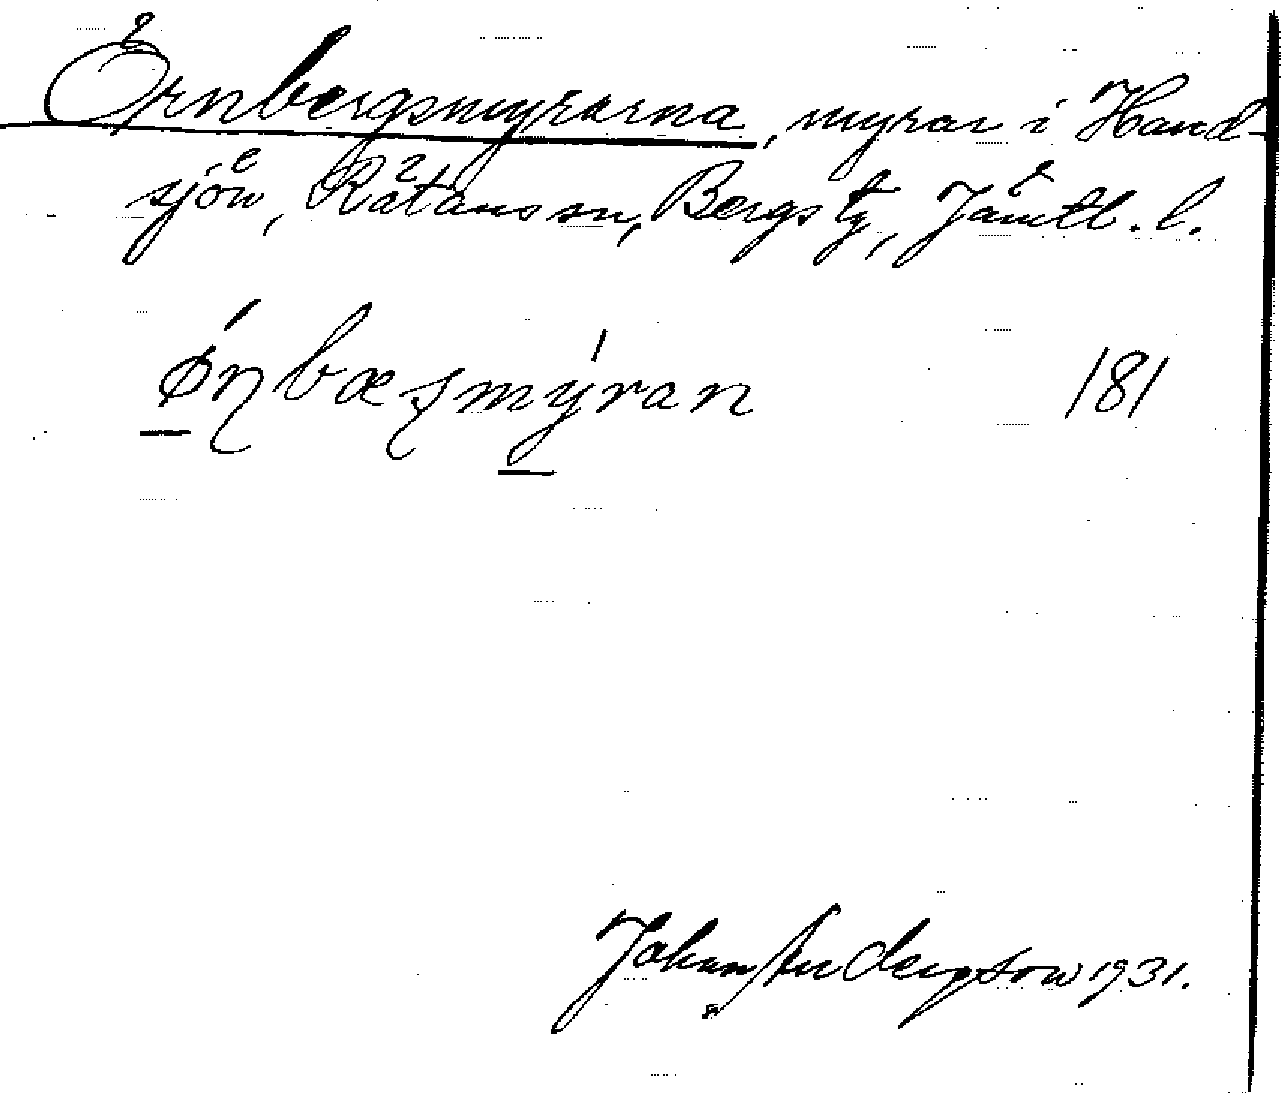 Örnbergsmyrarna, myrar i Hand-
sjön, Rätans sn, Bergs tg, Jämtl. l.
ǿɳbæʂmýran 181
Johan Andersson 1931.